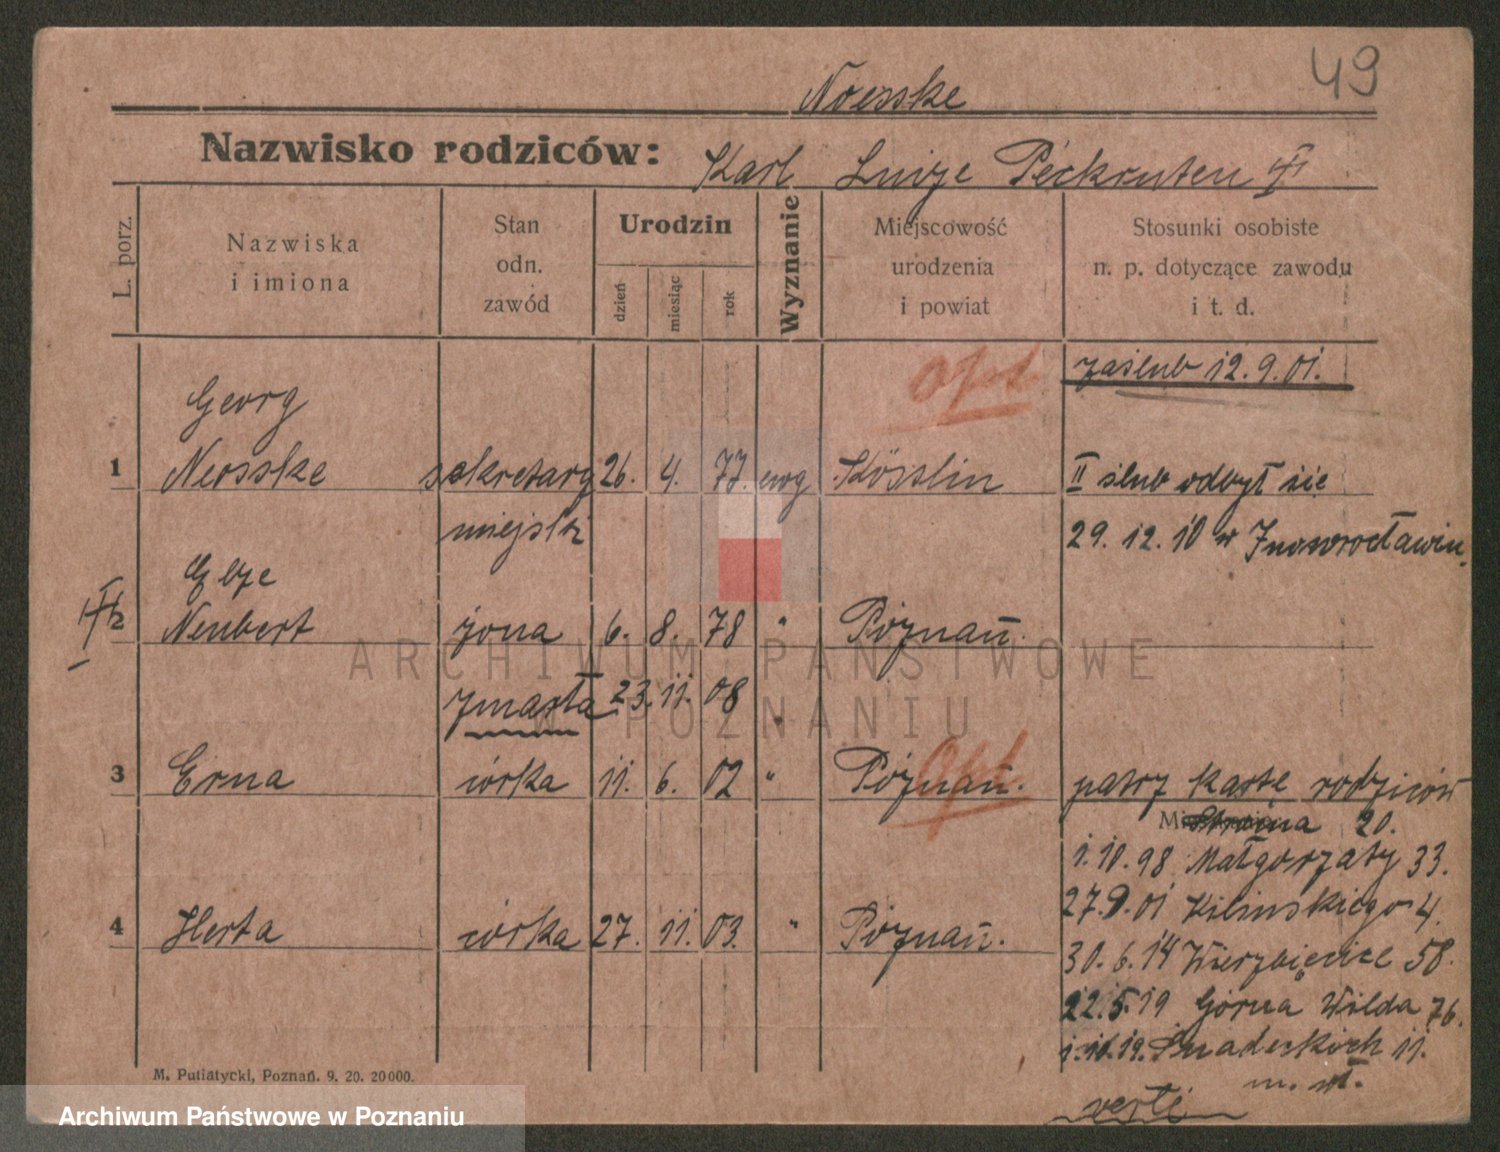 49
Noesske
Nazwisko rodziców: Karl Luize Peckruten
L. porz.
Nazwiska i imiona
Stan odn. zawód
Urodzin
dzień
miesiąc
rok
Wyznanie
Miejscowość urodzenia i powiat
Stosunki osobiste n. p. dotyczące zawodu i t. d.
Opt.
zaślub 12.9.01.
Georg
1 Neosske sekretarz 26. 4. 77. ewg Kösslin II ślub odbył się
miejski 29. 12. 10 w Inowrocławiu.
Elze
2 Neubert żona 6. 8. 78 " Poznań.
zmarła 23. 11. 08
3 Erna córka 11. 6. 02 " Poznań. patrz kartę rodziców
Opt.
Stroma 20.
1.10.98 Małgorzaty 33.
27.9.01 Kilinskiego 4.
4 Herta córka 27. 11. 03. " Poznań.
30.6.14 Wierzbięcice 58.
22.5.19 Górna Wilda 76.
1.10.19. Śniadeckich 11.
m. III.
verte
M. Putiatycki, Poznań. 9. 20. 20000.
ARCHIWUM PAŃSTWOWE
W POZNANIU
Archiwum Państwowe w Poznaniu